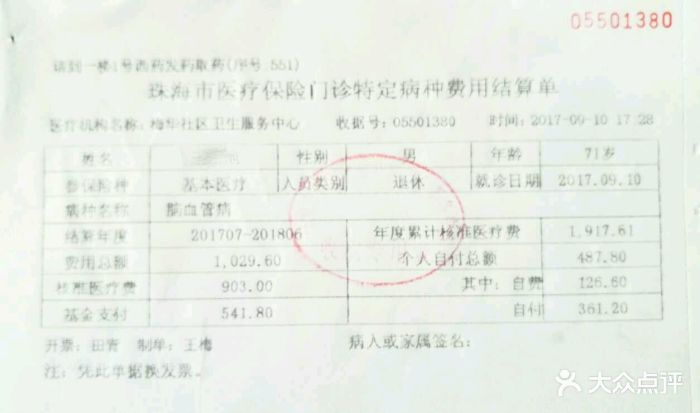 05501380
请到一楼1号西药发药取药(序号:551)
珠海市医疗保险门诊特定病种费用结算单
医疗机构名称: 梅华社区卫生服务中心 收据号: 05501380 时间: 2017-09-10 17:28
姓名 性别 男 年龄 71岁
参保险种 基本医疗 人员类别 退休 就诊日期 2017.09.10
病种名称 脑血管病
结算年度 201707-201806 年度累计核准医疗费 1,917.61
费用总额 1,029.60 个人自付总额 487.80
核准医疗费 903.00 其中: 自费 126.60
基金支付 541.80 自付 361.20
开票: 田青 制单: 王梅 病人或家属签名:
注: 凭此单据换发票。
大众点评